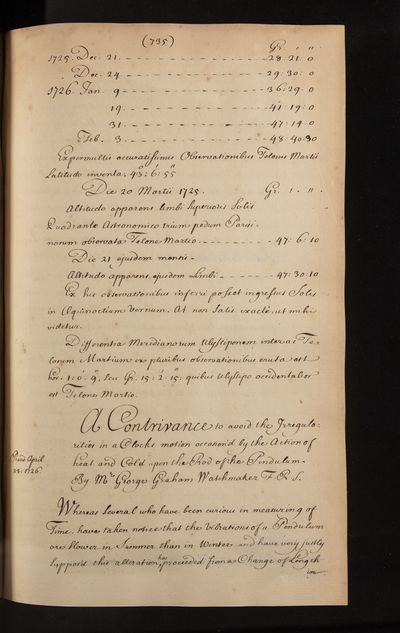 (735)
Gr. ' "
1725. Dec. 21. - - - - - - - - - 28: 21: 0
Dec. 24. - - - - - - - - - 29: 30: 0
1726. Jan. 9 - - - - - - - - - 36: 29. 0
19. - - - - - - - - - 41. 19: 0
31. - - - - - - - - - 47: 14. 0
Feb. 3. - - - - - - - - - 48. 40.30
Ex permultis accuratissimis Observationibus Telonis Martii
Latitudo inventa, 43°: 6': 55"
Die 20 Martii 1725. Gr. ' "
Altitudo apparens limbi superioris Solis
Quadrante Astronomico trium pedum Parisi-
norum observata Telone Martio - - - - 47: 6: 10
Die 21 ejusdem mensis -
Altitudo apparens ejusdem Limbi - - - - 47: 30. 10
Ex his observationibus inferri posset ingressus Solis
in Æquinoctium Vernum. At non satis exacte, ut mihi
videtur.
Differentia Meridianorum Ulyssiponem inter ac Te-
lonem Martium ex pluribus observationibus enata est
hor. 1: 0': 9", seu Gr. 15: 2': 15": quibus Ulyssipo occidentalior
est Telone Martio.
A Contrivance to avoid the Irregula-
rities in a Clocks motion occasion'd by the Action of
Read April
28. 1726.
heat and Cold upon the Rod of the Pendulum.
By Mr George Graham Watchmaker F. R. S.
Whereas several who have been curious in measuring of
Time, have taken notice that the Vibrations of a Pendulum
are slower in Summer than in Winter and have very justly
suppos'd this alteration has proceeded from a Change of Length
in